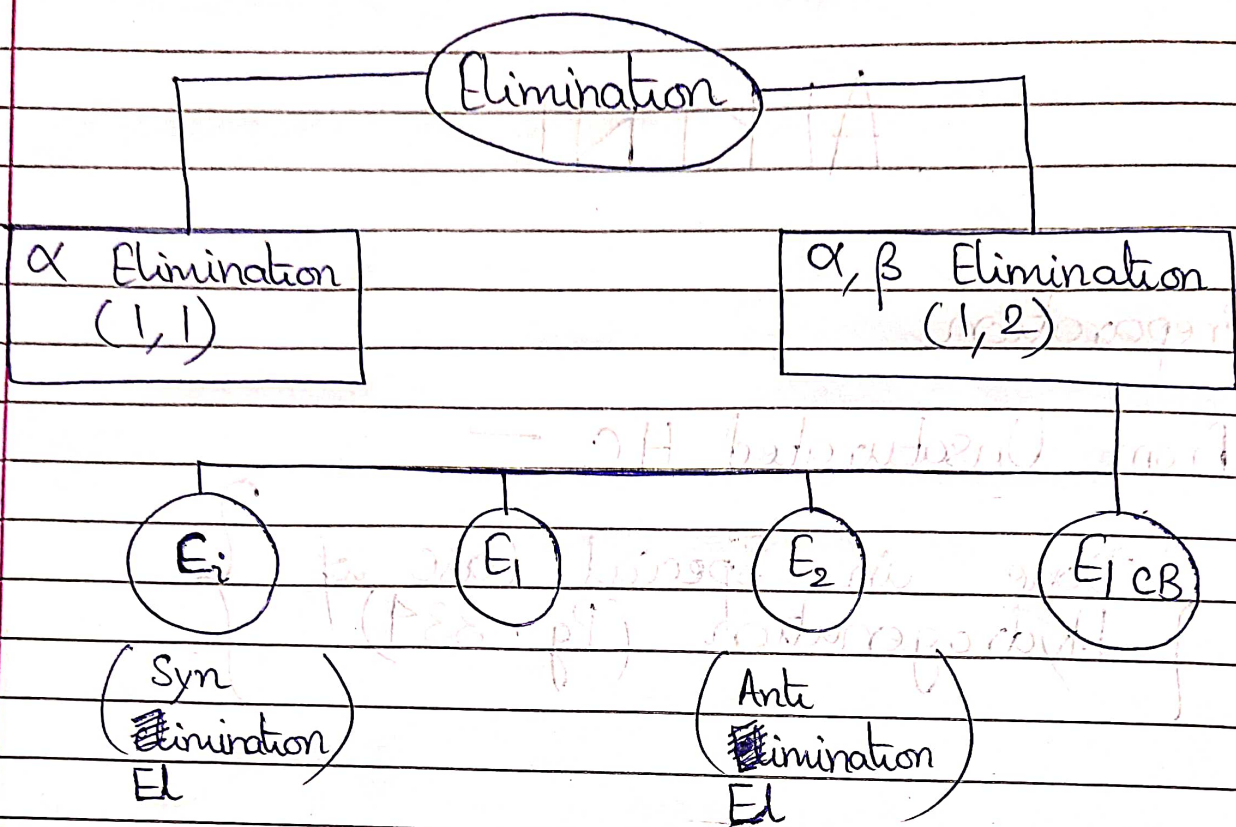 Elimination
α Elimination
(1,1)
α, β Elimination
(1,2)
Ei
E1
E2
E1 CB
(Syn
Elimination)
(Anti
Elimination)